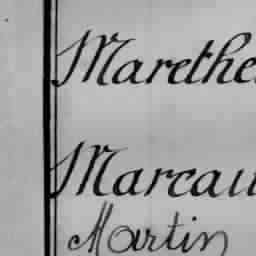 Marethe
Marcau
Martin